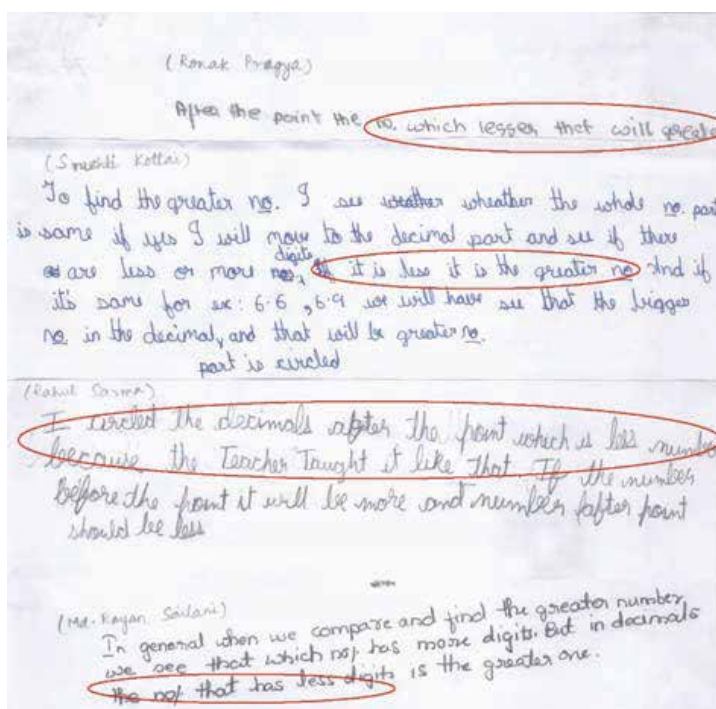 (Ronak Pragya)
After the point the no. which lesser that will greate
(Smushti Kottai)
To find the greater no. I see wheather the whole no. part
is same if yes I will move to the decimal part and see if there
are less or more digits, If it is less it is the greater no. And if
it's same for ex: 6.6 , 6.9 we will have see that the bigger
no. in the decimal, and that will be greater no.
part is circled
(Rahul Sarma)
I circled the decimals after the point which is less number
because the Teacher Taught it like that. If the number
Before the point it will be more and number (after point
should be less
(Md. Rayan Sailani)
In general when we compare and find the greater number,
we see that which no. has more digits. But in decimals
the no. that has less digits is the greater one.